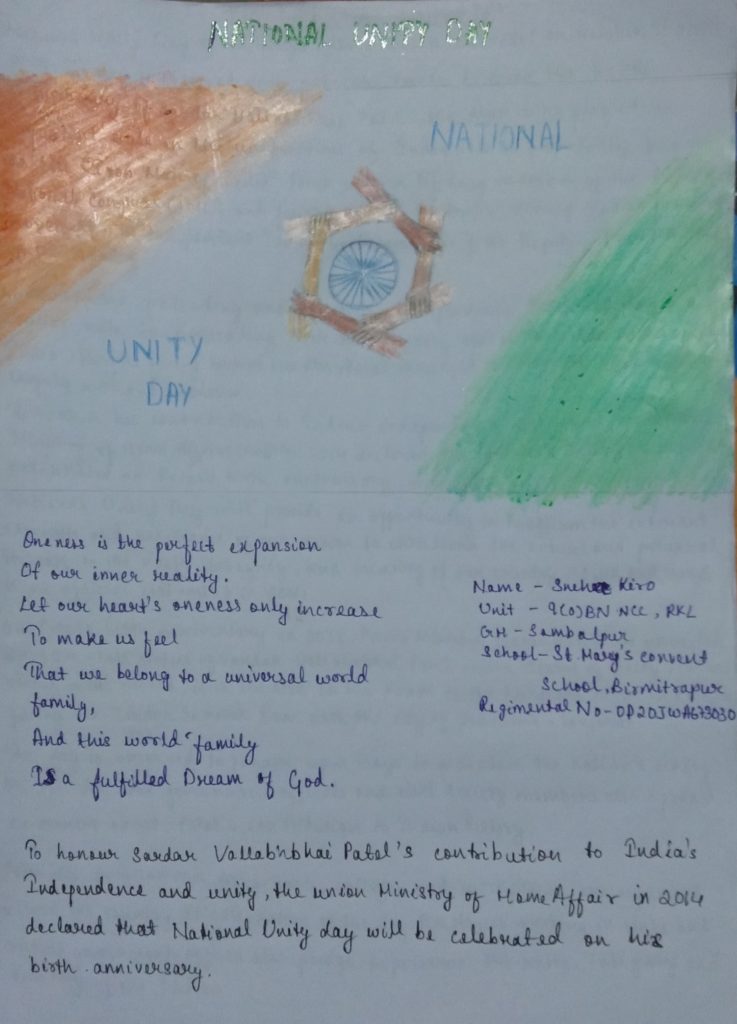 NATIONAL UNITY DAY
NATIONAL
UNITY
DAY
Oneness is the perfect expansion
Of our inner reality.
Let our heart's oneness only increase
To make us feel
That we belong to a universal world
family,
And this world family
Is a fulfilled Dream of God.
Name - Sneha Kiro
Unit - 9(O)BN NCC, RKL
GH - Sambalpur
School - St. Mary's convent
School, Birmitrapur
Regimental No - OD20JWA673030
To honour Sardar Vallabhbhai Patel's contribution to India's
Independence and unity, the union Ministry of Home Affair in 2014
declared that National Unity day will be celebrated on his
birth anniversary.